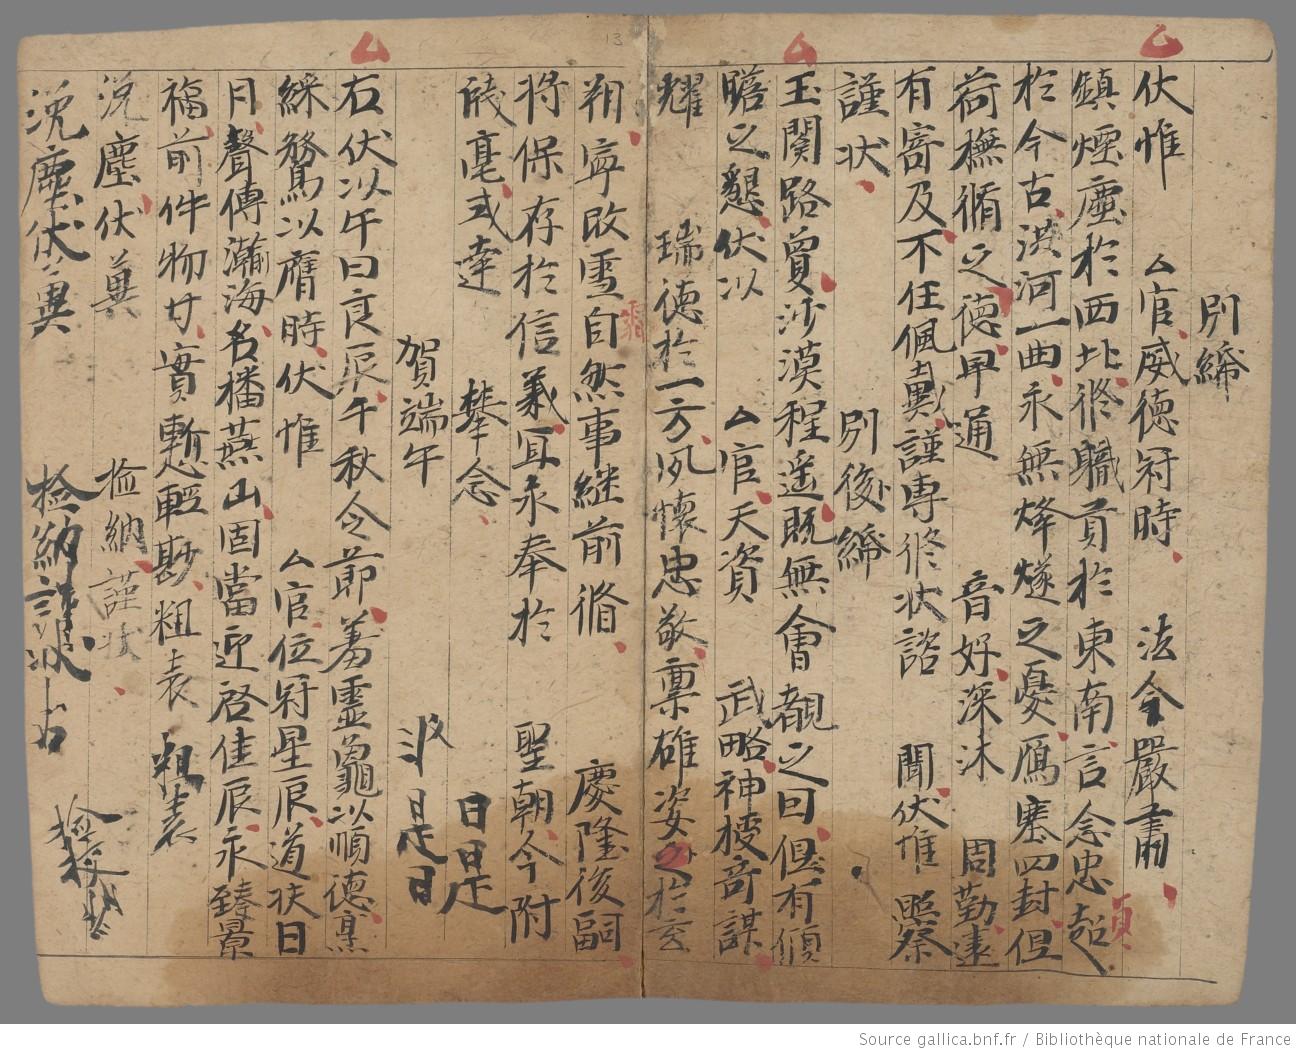 別𦀰
伏惟 厶官威德冠時 法令嚴肅
鎮煙塵於西北修職貢於東南言念忠超 貞
於今古洪河一曲永無烽燧之憂鴈塞四封但
荷撫循之德早通 音好深沐 周勤遠
有寄及不任佩戴謹專修状諮 聞伏惟 照察
謹状 別後𦀰
玉関路夐沙漠程遥既無會覩之曰但有傾
瞻之懇伏以 厶官天資 武略神授奇謀
耀 瑞德於一方夙懷忠敬禀雄姿於玄
朔寧敢雪自然事継前脩 慶隆後嗣
将保存於信義冝永奉於 聖朝今附
牋毫或達 攀念 日是
賀端午 是日
右伏以午日良辰午秋令節羞靈龜以順德烹
綵鴛以膺時伏惟 厶官位冠星辰道扶日
月聲傳瀚海名播燕山固當迎啓佳辰永臻景
福前件物廿實慙輕尠粗表 粗表
涜塵伏冀 检納謹状
涜塵伏冀 检納謹状
13
Source gallica.bnf.fr / Bibliothèque nationale de France